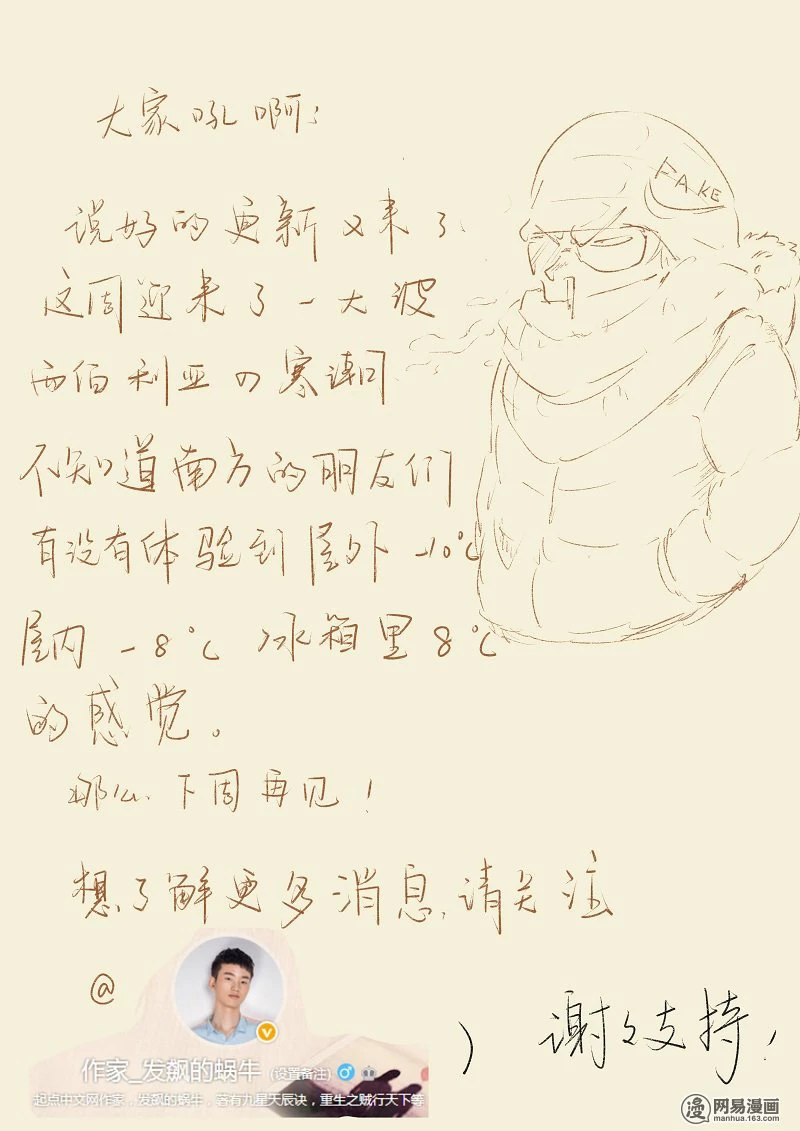 大家吼啊：
FAKE
说好的更新又来了
这周迎来了一大波
西伯利亚の寒潮
不知道南方的朋友们
有没有体验到屋外-10℃
屋内-8℃ 冰箱里8℃
的感觉。
那么下周再见！
想了解更多消息，请关注
@
作家_发飙的蜗牛 (设置备注)
起点中文网作家，发飙的蜗牛，著有九星天辰诀，重生之贼行天下等
谢々支持！
漫 网易漫画
manhua.163.com